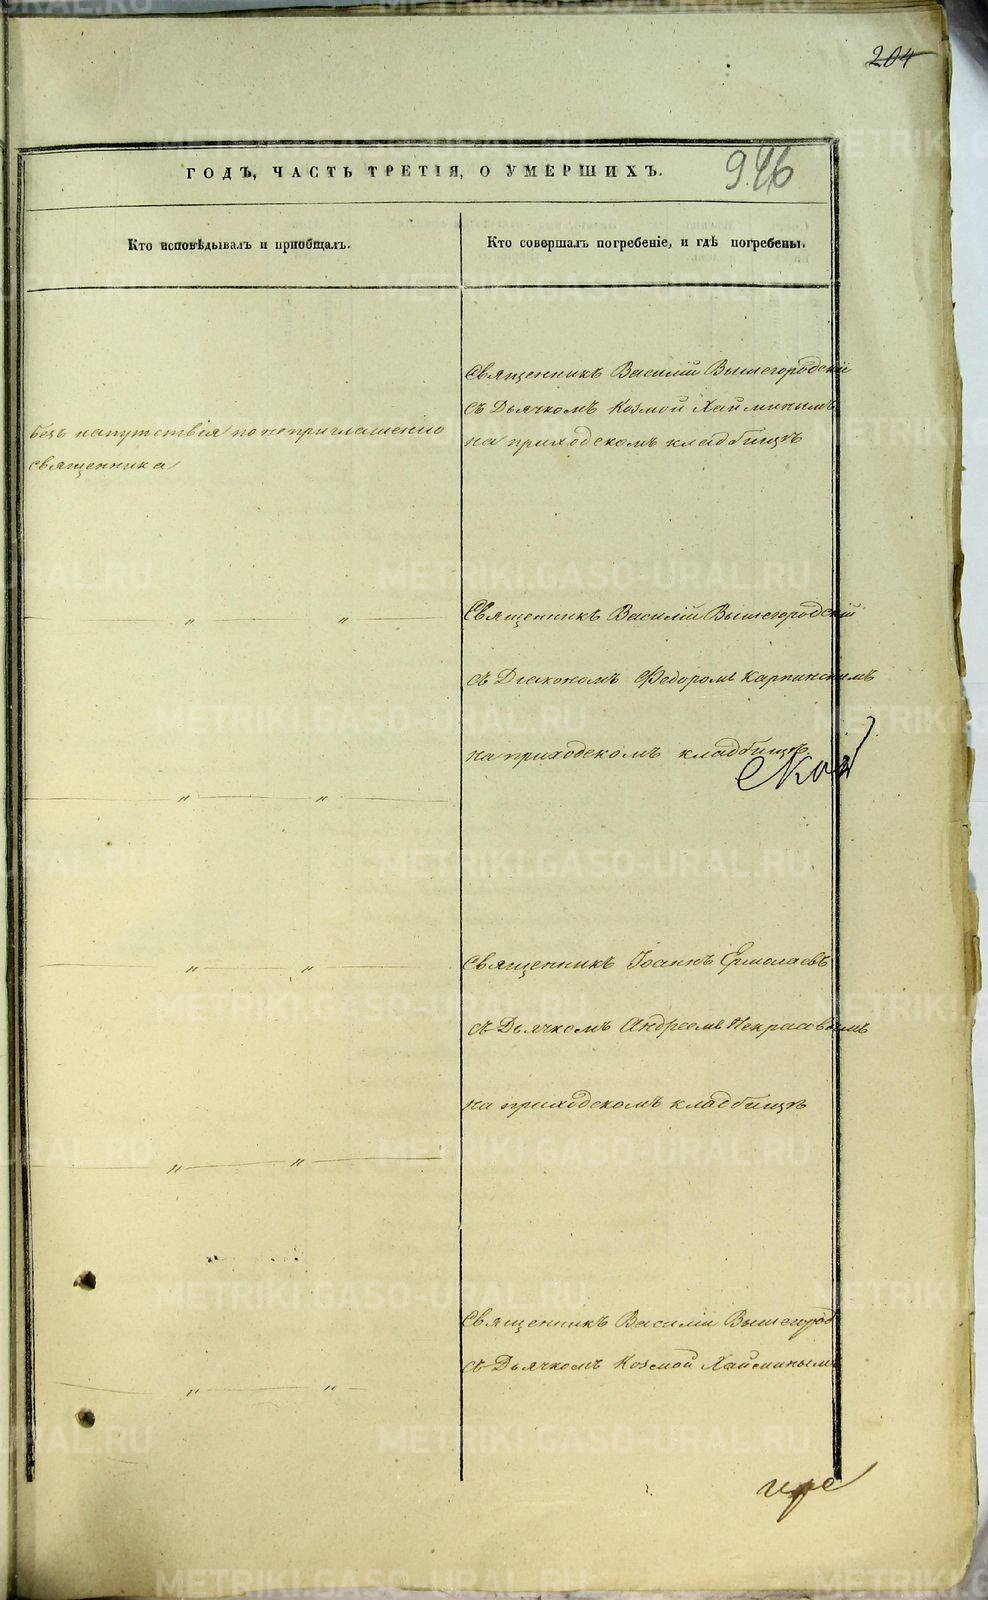 204
946
ГОДЪ, ЧАСТЬ ТРЕТІЯ, О УМЕРШИХЪ.
Кто исповѣдывалъ и пріобщалъ.
Кто совершалъ погребеніе, и гдѣ погребены.
Безъ напутствія по неприглашенію
священника
Священникъ Василій Вышегородскій
съ Дьячкомъ Козмой Хайминымъ
на приходскомъ кладбищѣ
— " — " —
Священникъ Василій Вышегородскій
съ Діакономъ Федоромъ Карпинскимъ
на приходскомъ кладбищѣ
— " — " —
— " — " —
Священникъ Іоаннъ Ермолаевъ
съ Дьячкомъ Андреемъ Некрасовымъ
на приходскомъ кладбищѣ
— " — " —
Священникъ Василій Вышегород
съ Дьячкомъ Козмой Хайминымъ
— " — " —
METRIKI.GASO-URAL.RU